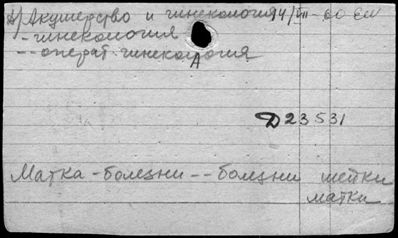 А) Акушерство и гинекология 14/VIII-60 ЕМ
- гинекология
-- операт. гинекология
Д23531
Матка - болезни -- болезни шейки
матки